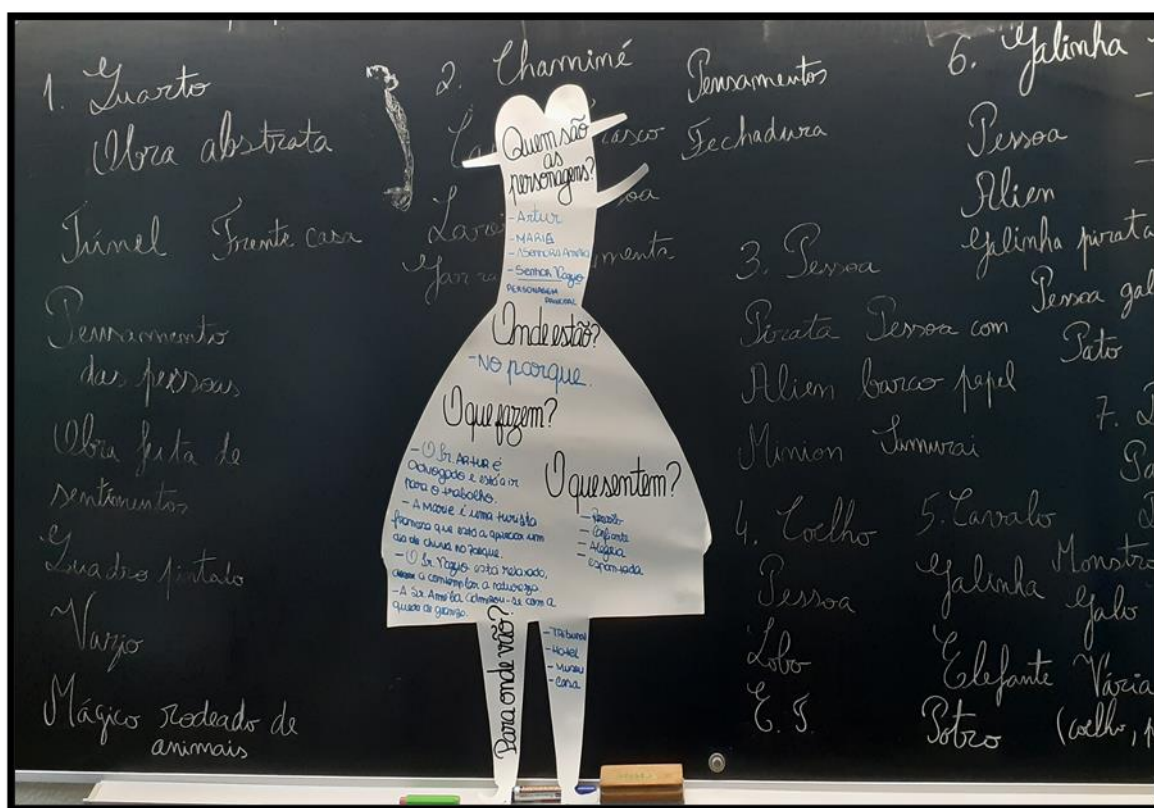 1. Quarto
Obra abstrata
Túnel Frente casa
Pensamento
das pessoas
Obra feita de
sentimentos
Quadro pintado
Vazio
Mágico rodeado de
animais
2. Chaminé
Pensamentos
Fechadura
Quem são
as
personagens?
- Artur
- MARIE
- SENHORA Amélia
- Senhor Vazio
PERSONAGEM
PRINCIPAL
Onde estão?
- No parque.
O que fazem?
- O Sr. ARTUR é
advogado e está a ir
para o trabalho.
- A MARIE é uma turista
francesa que está a apreciar um
dia de chuva no parque.
- O Sr. Vazio está relaxado,
a contemplar a natureza.
- A Sr. Amélia admirou-se com a
queda de granizo.
O que sentem?
- Confiante
- Alegria
- espantada
Para onde vão?
- TRIBUNAL
- HOTEL
- Museu
- Casa
3. Pessoa
Pirata Pessoa com
Alien barco papel
Minion Samurai
4. Coelho
Pessoa
Lobo
E.T.
5. Cavalo
Galinha
Elefante
Potro
6. Galinha
Pessoa
Alien
Galinha pirata
Pessoa gal
Pato
7.
Monstro
Galo
Vária
(coelho, p